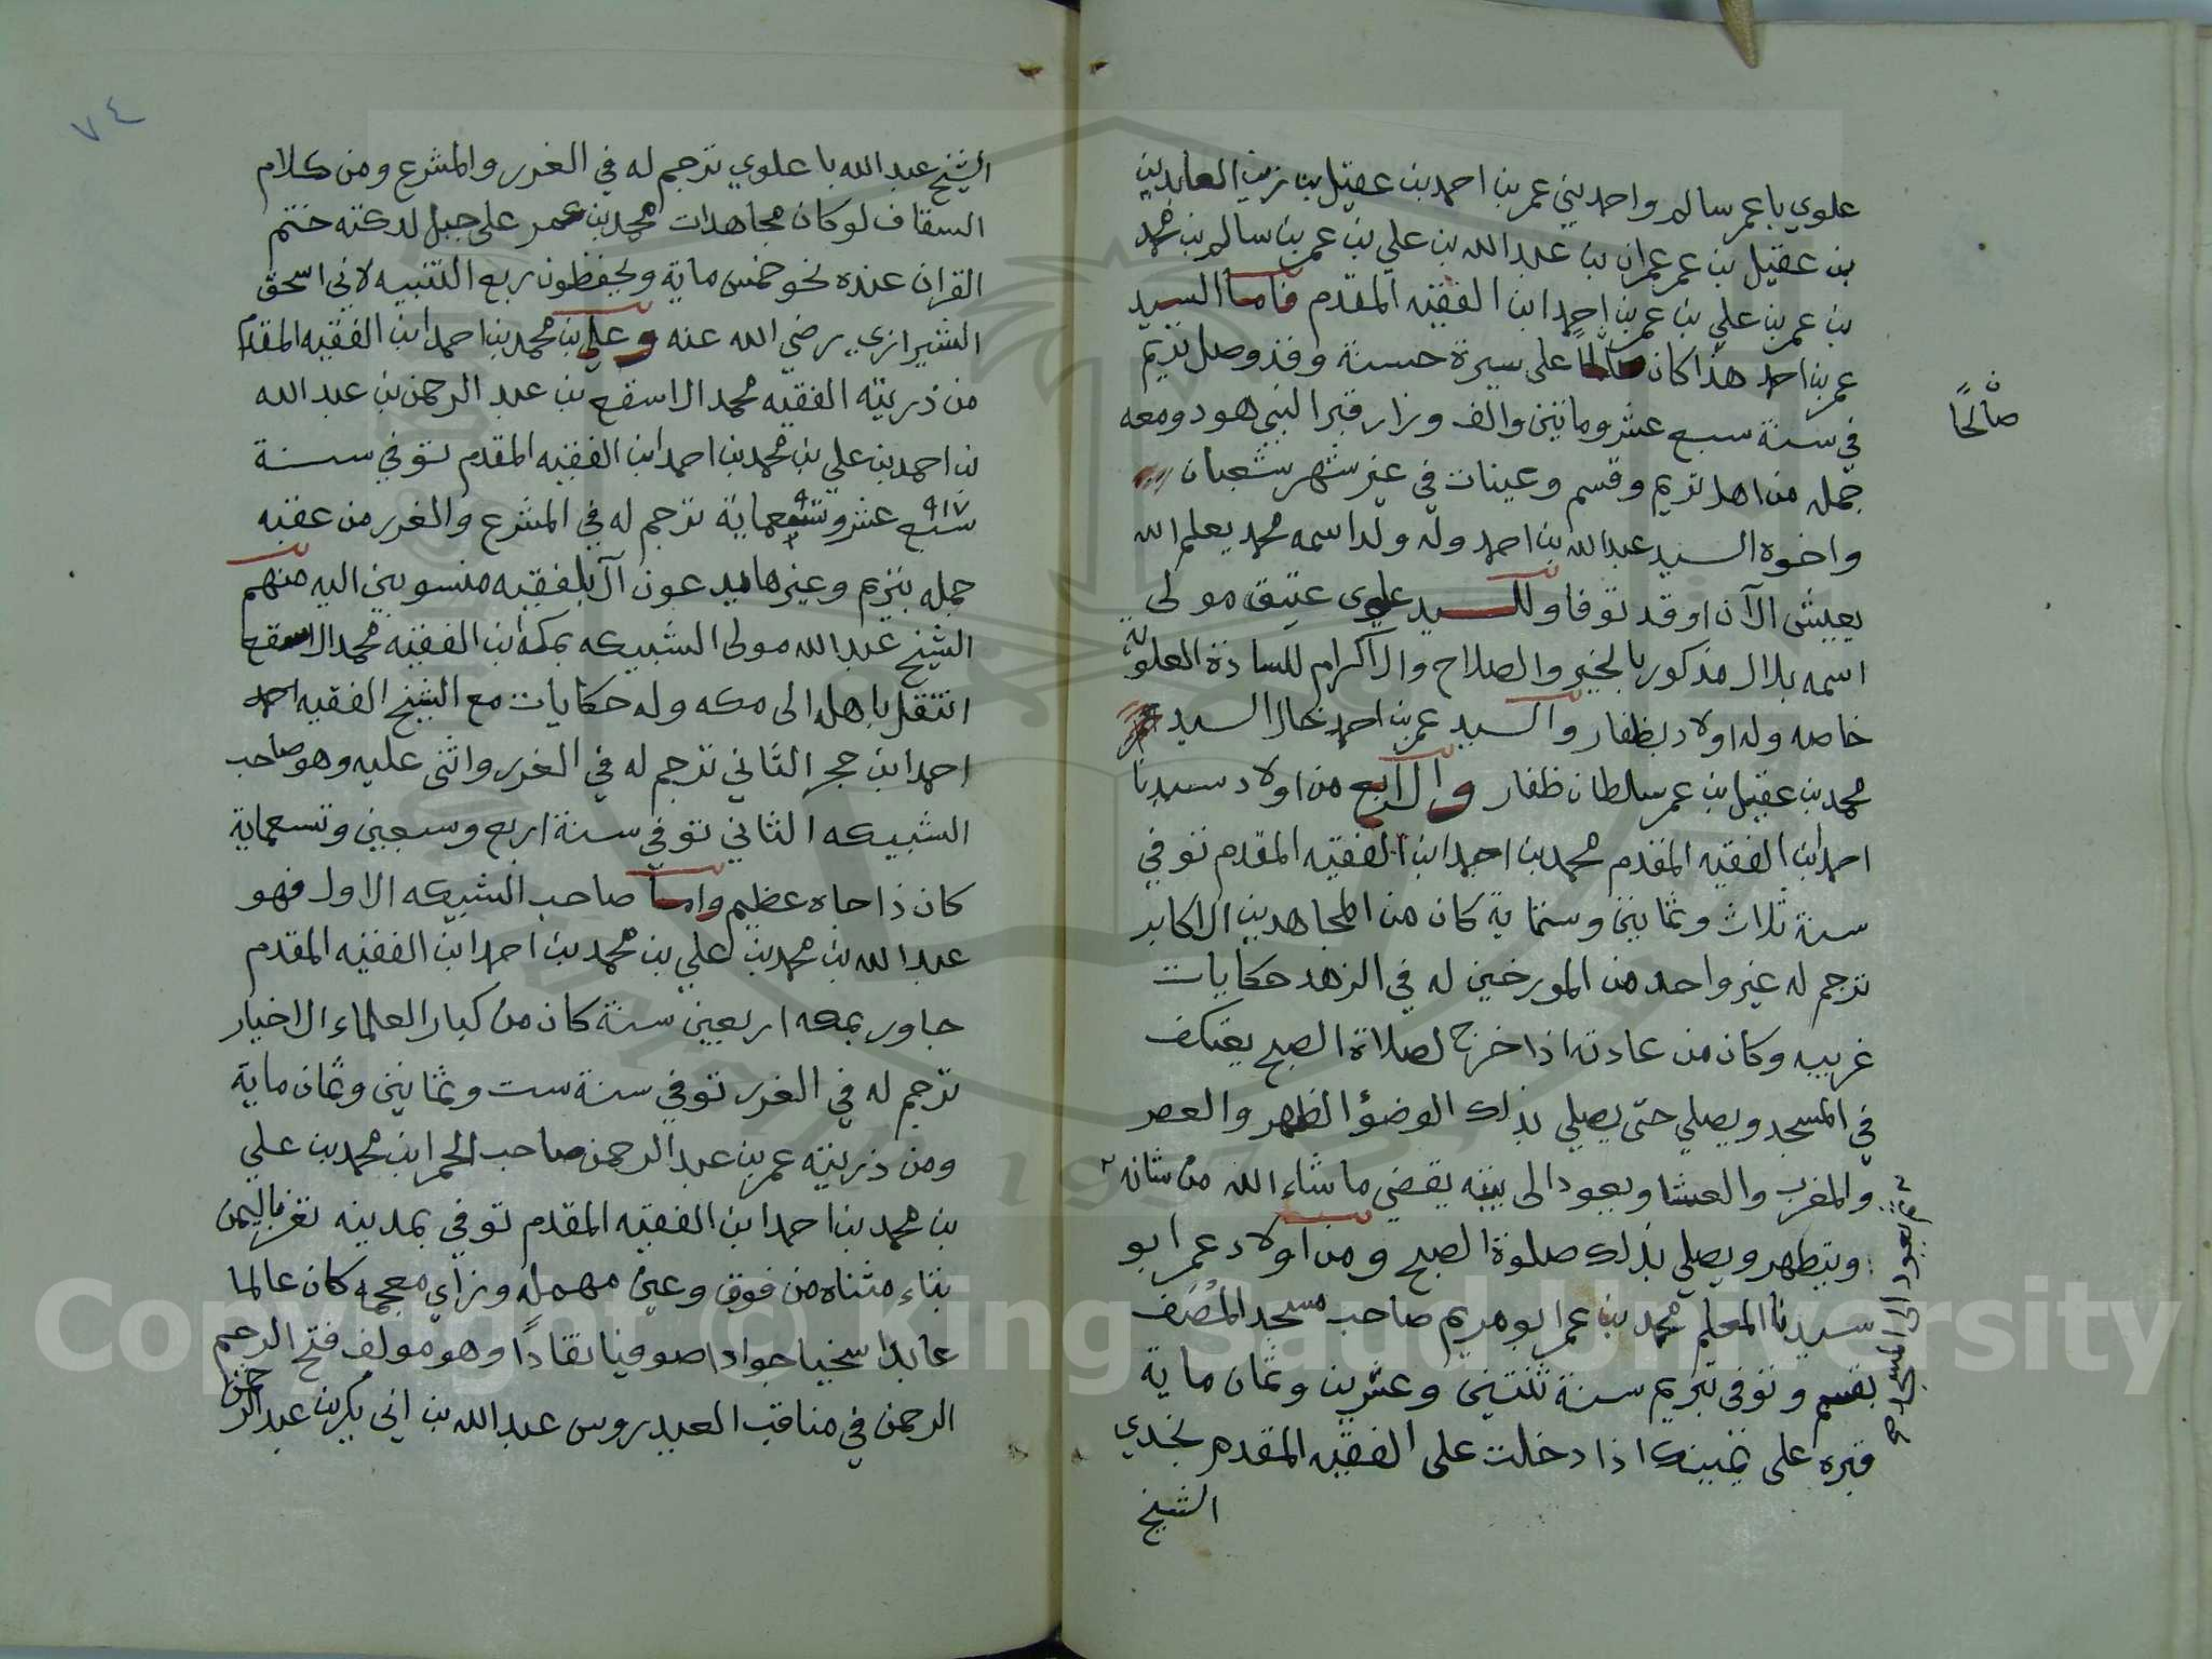 علوي باعمر سالم واحمد بني عمر بن احمد بن عقيل بن زين العابدين
بن عقيل بن عمر عمران بن عبدالله بن علي بن عمر بن سالم بن محمد
بن عمر بن علي بن عمر بن احمد ابن الفقيه المقدم فاما السيد
عمر بن احمد هذا كان صالحاً على سيرة حسنة وقد وصل تريم
صالحًا
في سنة سبع عشر وماتين والف وزار قبر النبي هود ومعه
جمله من اهل تريم وقسم وعينات في غير شهر شعبان
واخوه السيد عبدالله بن احمد وله ولد اسمه محمد يعلم الله
يعيش الآن او قد توفا وللسيد علوي عتيق مولى
اسمه بلال مذكور بالخير والصلاح والاكرام للسادة العلويه
خاصه وله اولاد بظفار والسيد عمر بن احمد خال السيد
محمد بن عقيل بن عمر سلطان ظفار والرابع من اولاد سيدنا
احمد ابن الفقيه المقدم محمد بن احمد ابن الفقيه المقدم توفي
سنة ثلاث وثمانين وستماية كان من المجاهدين الاكابر
ترجم له غير واحد من المورخين له في الزهد حكايات
غريبه وكان من عادته اذا خرج لصلاة الصبح يعتكف
في المسجد ويصلي حتى يصلي بذلك الوضؤ الظهر والعصر
والمغرب والعشا ويعود الى بيته يقضي ما شاء الله من شانه
ثم يعود الى المسجد صح
ويتطهر ويصلي بذلك صلوة الصبح ومن اولاد عمر ابو
سيدنا المعلم محمد بن عمر ابو مريم صاحب مسجد المصف
بقسم وتوفى بتريم سنة ثنتين وعشرين وثمان ماية
قبره على يمينك اذا دخلت على الفقيه المقدم بخدي
الشيخ
٧٤
الشيخ عبدالله باعلوي ترجم له في الغرر والمشرع ومن كلام
السقاف لو كان مجاهدات محمد بن عمر على جبل لدكته ختم
القران عنده نحو خمس ماية ويحفظون ربع التنبيه لابي اسحق
الشيرازي رضي الله عنه وعلي بن محمد بن احمد ابن الفقيه المقدم
من ذريته الفقيه محمد الاسقع بن عبد الرحمن بن عبدالله
بن احمد بن علي بن محمد بن احمد ابن الفقيه المقدم توفي سنة
٩١٧
سبع عشر وتسعماية ترجم له في المشرع والغرر من عقبه
جمله بتريم وغيرها يدعون آل بلفقيه منسوبين اليه منهم
الشيخ عبدالله مولى الشبيكه بمكه ابن الفقيه محمد الاسقع
انتقل باهله الى مكه وله حكايات مع الشيخ الفقيه احمد
احمد ابن حجر الثاني ترجم له في الغرر واثنى عليه وهو صاحب
الشبيكه الثاني توفي سنة اربع وسبعين وتسعماية
كان ذا جاه عظيم واما صاحب الشبيكه الاول فهو
عبدالله بن محمد بن علي بن محمد بن احمد ابن الفقيه المقدم
جاور بمكه اربعين سنة كان من كبار العلماء الاخيار
ترجم له في الغرر توفي سنة ست وثمانين وثمان ماية
ومن ذريته عمر بن عبدالرحمن صاحب الحمرا بن محمد بن علي
بن محمد بن احمد ابن الفقيه المقدم توفي بمدينه تعز باليمن
بتاء مثناه من فوق وعين مهمله وزاي معجمه كان عالما
عابدا سخيا جوادا صوفيا نقادًا وهو مولف فتح الرحيم
الرحمن في مناقب العيدروس عبدالله بن ابي بكر بن عبدالرحمن
Copyright © King Saud University